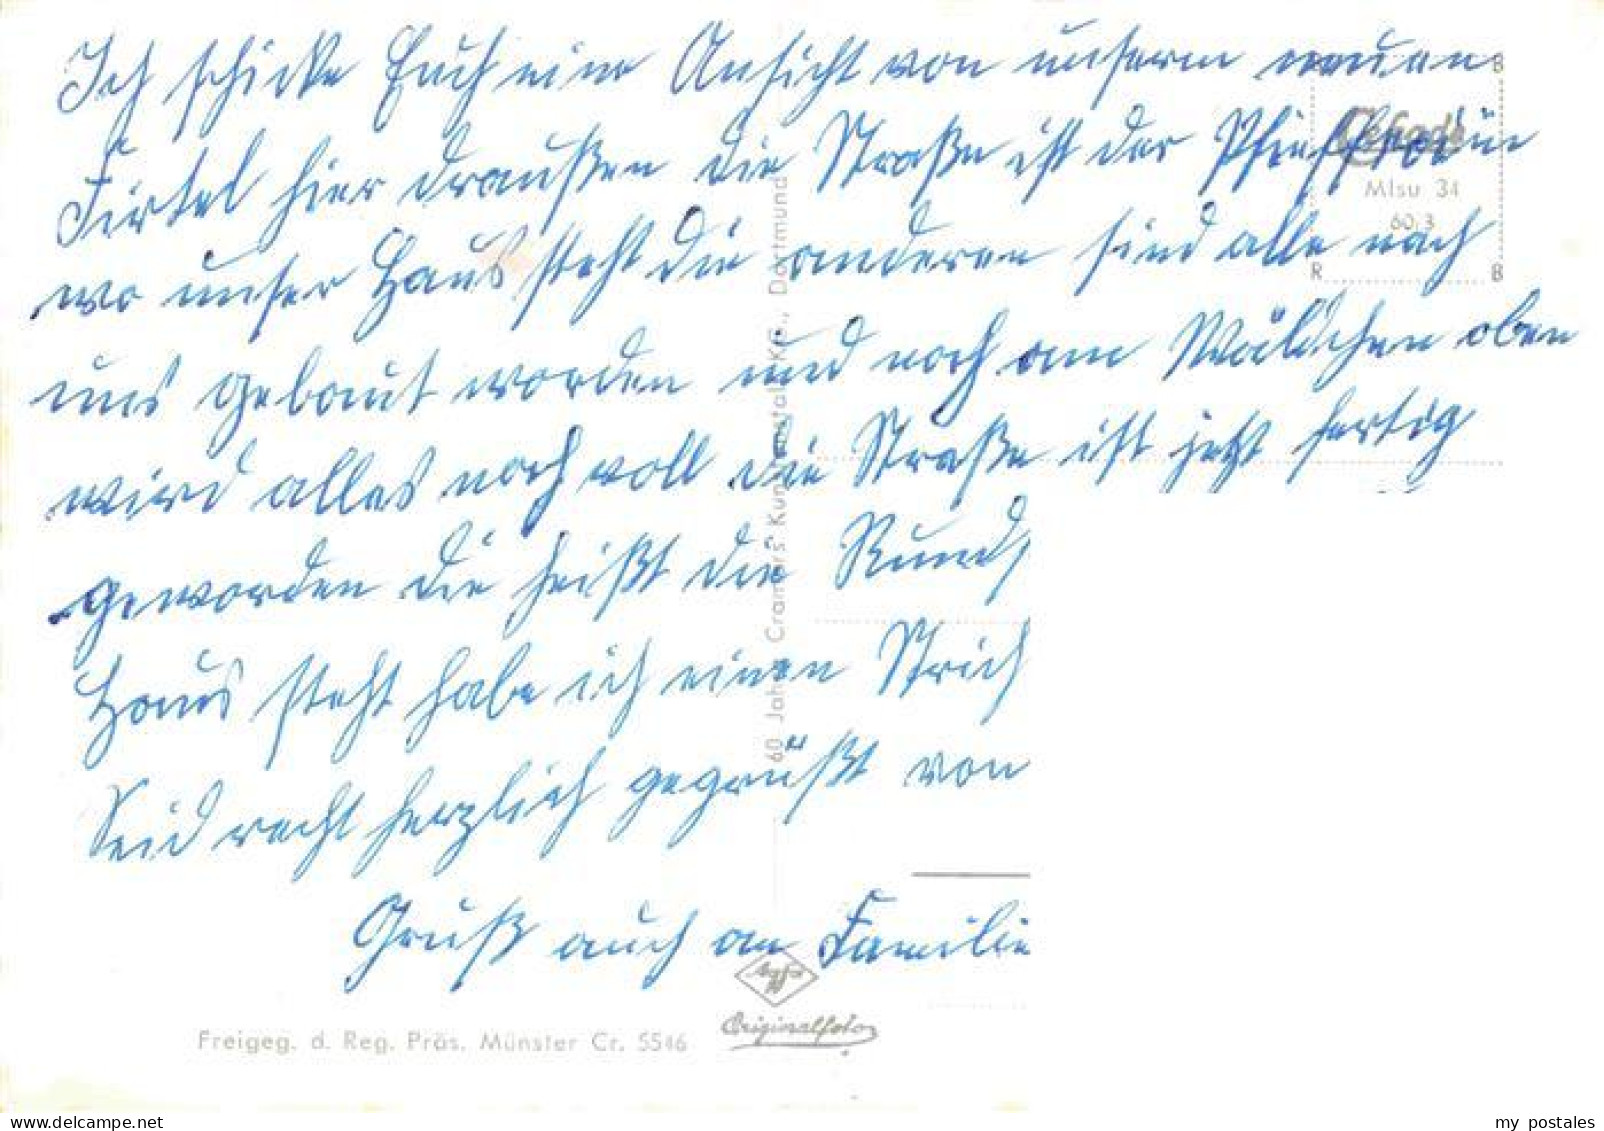 Ich schicke Euch eine Ansicht von unserm neuen
Firtel hier draußen die Straße ist der
wo unser Haus steht die anderen sind alle nach
uns gebaut worden und noch am Wäldchen oben
wird alles noch voll die Straße ist jetzt fertig
geworden die heißt die Runds
Haus steht habe ich einen Strich
Seid recht herzlich gegrüßt von
Gruß auch an Familie
Cefade
Mlsu 34
60.3
B
R
B
60 Jahre Cramers Kunstanstalt KG., Dortmund
Agfa
Originalfoto
Freigeg. d. Reg. Präs. Münster Cr. 5546
my postales